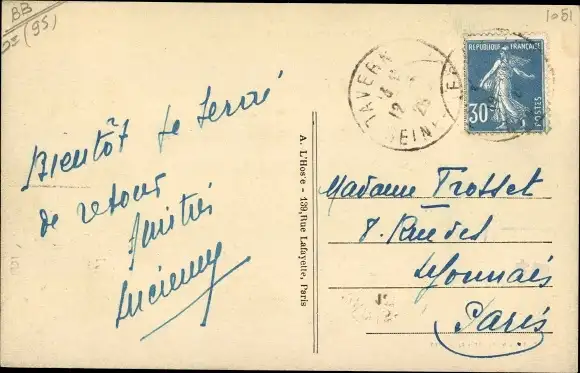 BB
(95)
1051
Bientôt je serai
de retour
Amitiés
Lucienne
A. L'Hoste - 139, Rue Lafayette, Paris
TAVERN
12
SEINE
REPUBLIQUE FRANÇAISE
30c
POSTES
Madame Trosset
8. Rue des
Lyonnais
Paris